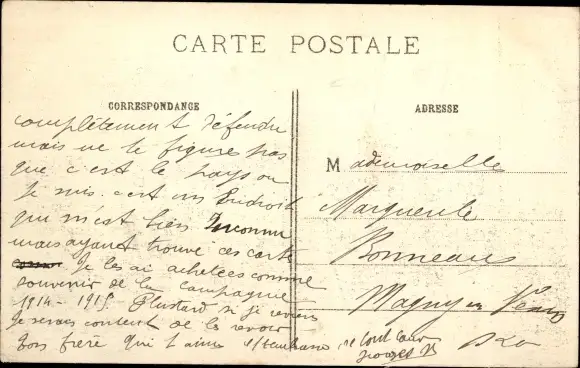 CARTE POSTALE
CORRESPONDANCE
complètement défendu
mais ne le figure pas
que c'est le pays ou
je suis. c'est un Endroit
qui m'est bien Inconnu
mais ayant trouvé ces carte
Je les ai achetées comme
souvenir de la Campagne
1914-1915 Plustard si je reviens
Je serais content de le revoir
Ton frère qui t'aime et t'embrasse de tout cœur
Georges B
ADRESSE
Mademoiselle
Marguerite
Bonneau
Magny en Vexin
S&O